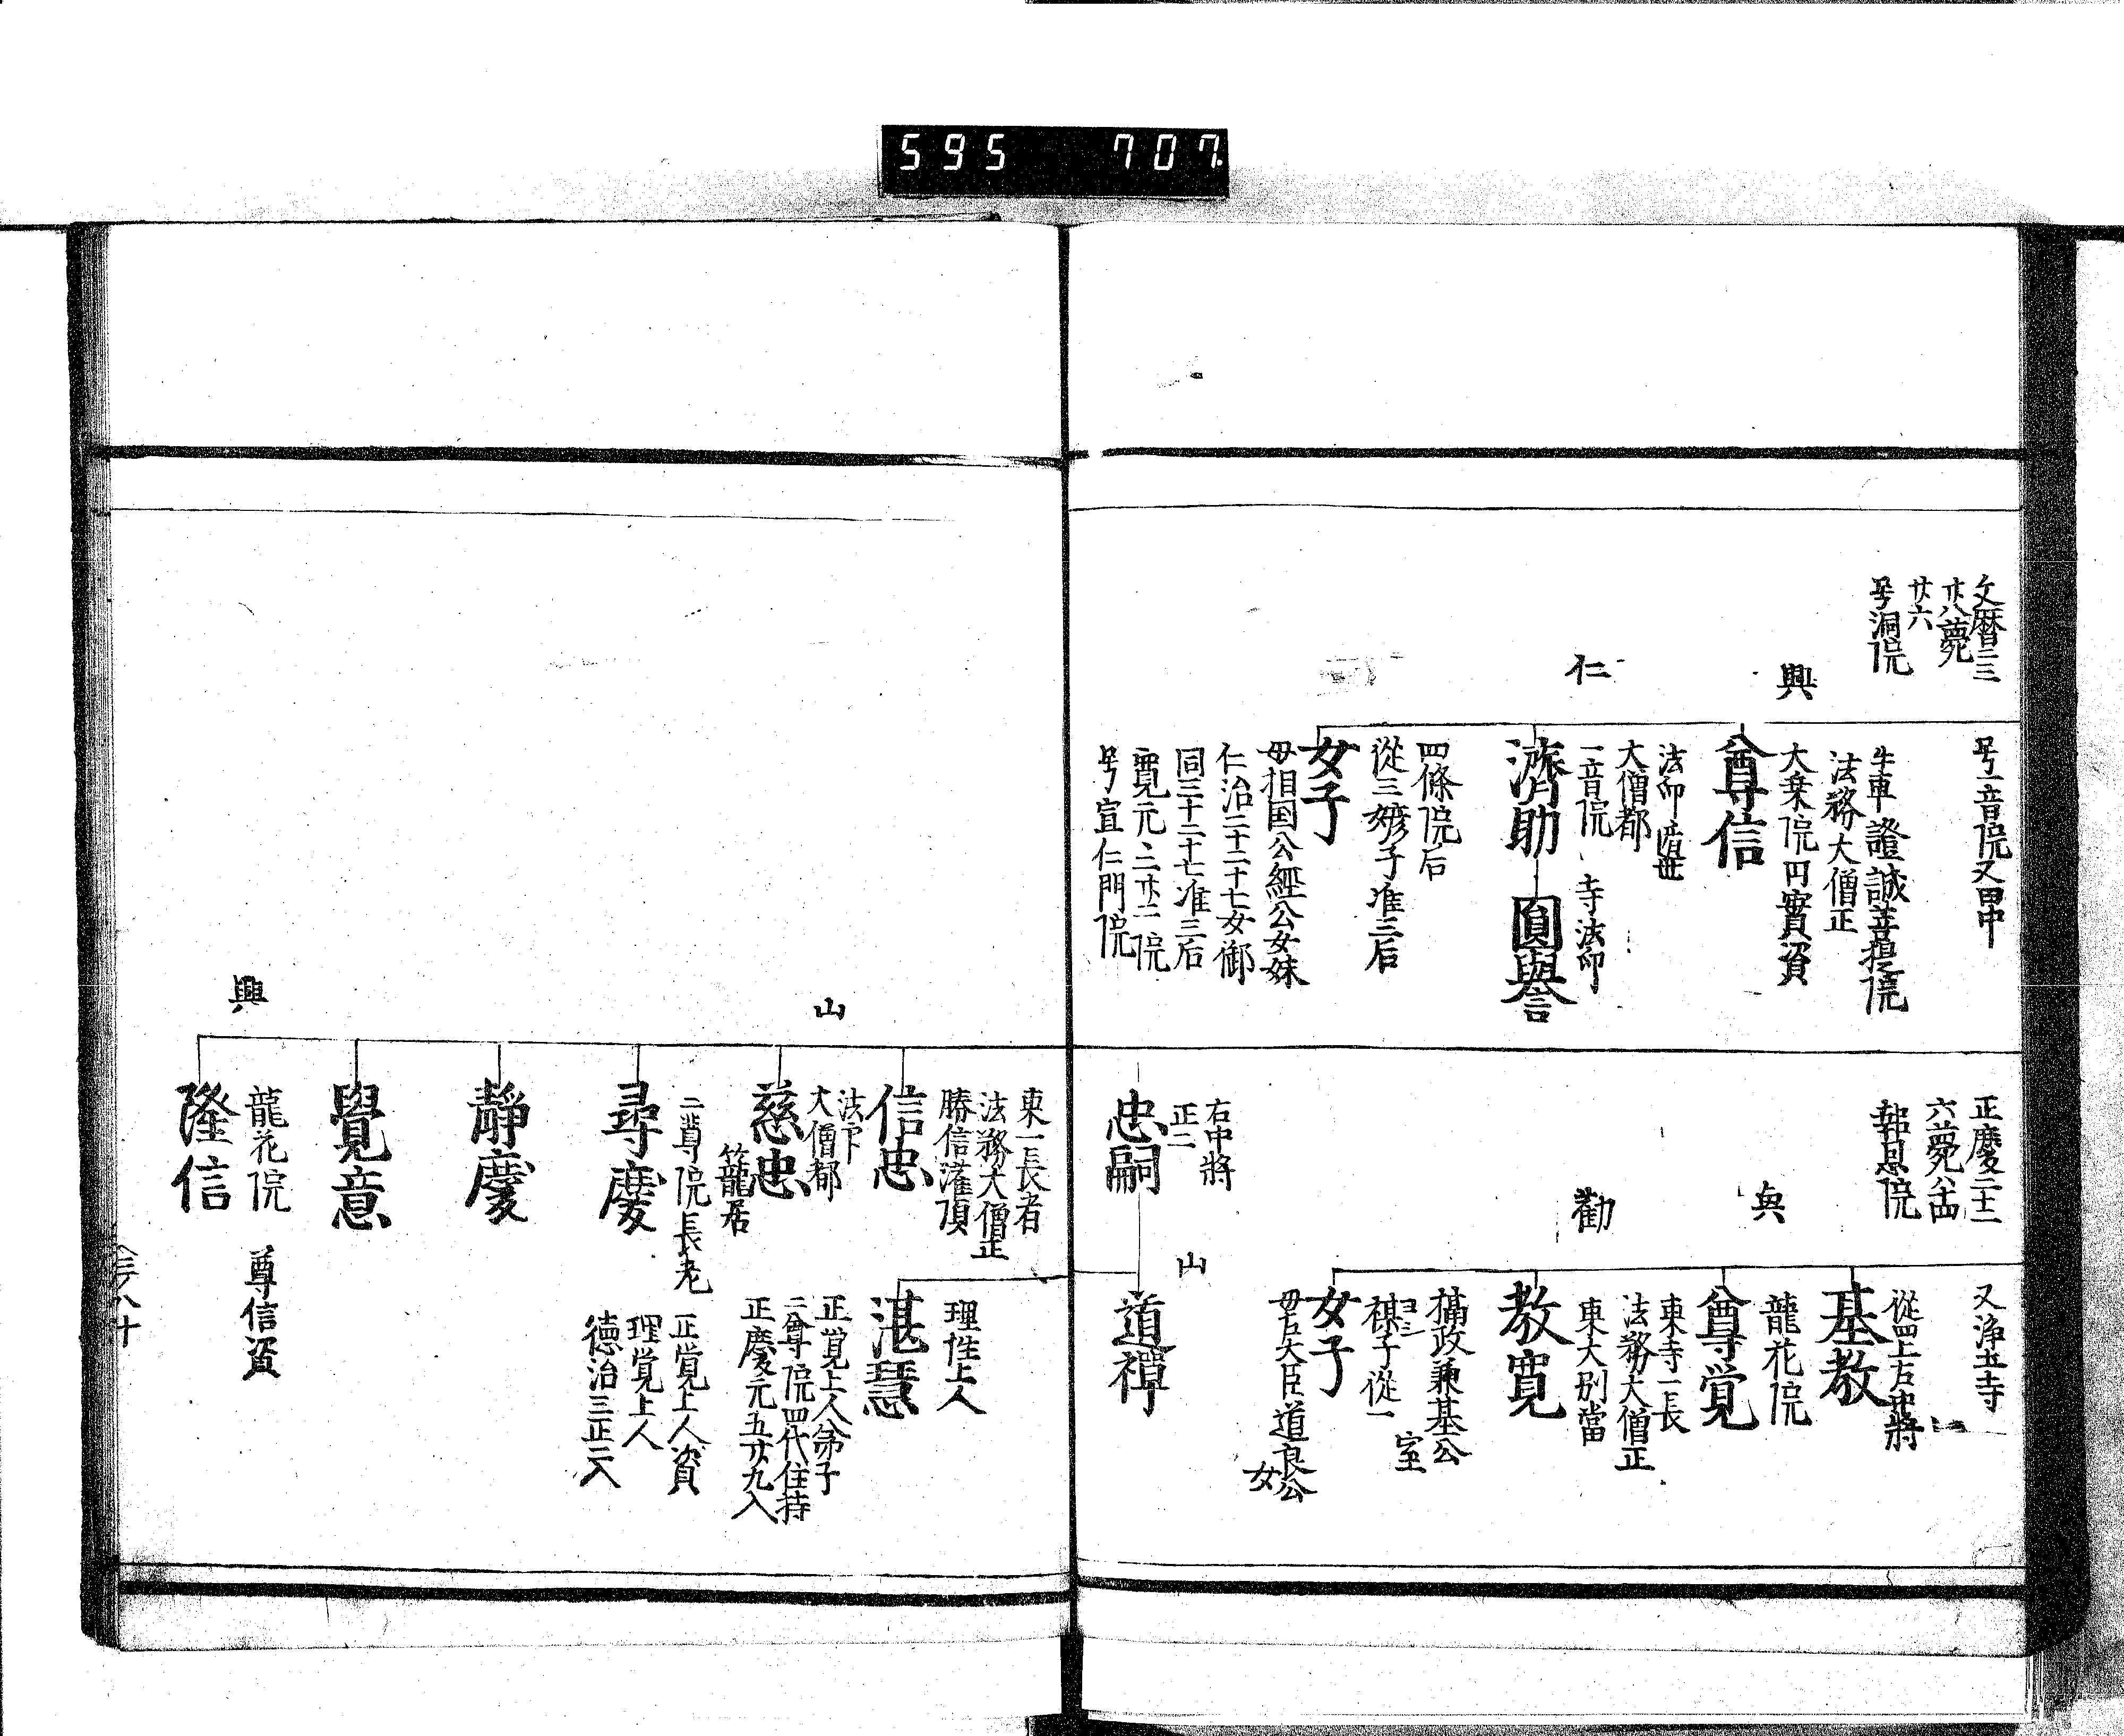 595 707.
文暦二三
廿八薨
廿六
号洞院
号一音院又田中
牛車 證誠菩提院
法務大僧正
興
大乗院円實資
尊信
法印 遁世
大僧都
一音院 寺法印
仁
濟助 圓譽
四條院后
從三 彦子 准三后
女子
母相国公經公女妹
仁治二十二十七女御
同三十二十七准三后
寛元二廿二院
号宣仁門院
正慶二十二
六薨八十四
報恩院
又淨土寺
從四上右中將
基教
興
龍花院
尊覚
東寺一長
法務大僧正
東大別當
勸
教寛
攝政兼基公
室
禖子從一
女子
母右大臣道良公
女
右中將
正二
忠嗣
山
道禪
東一長者
法務大僧正
勝信潅頂
信忠
理性上人
湛慧
正覚上人弟子
二尊院四代住持
正慶元五廿九入
山
法下
大僧都
慈忠
籠居
二尊院長老
正覚上人資
理覚上人
德治三正二入
尋慶
靜慶
覺意
興
龍花院 尊信資
隆信